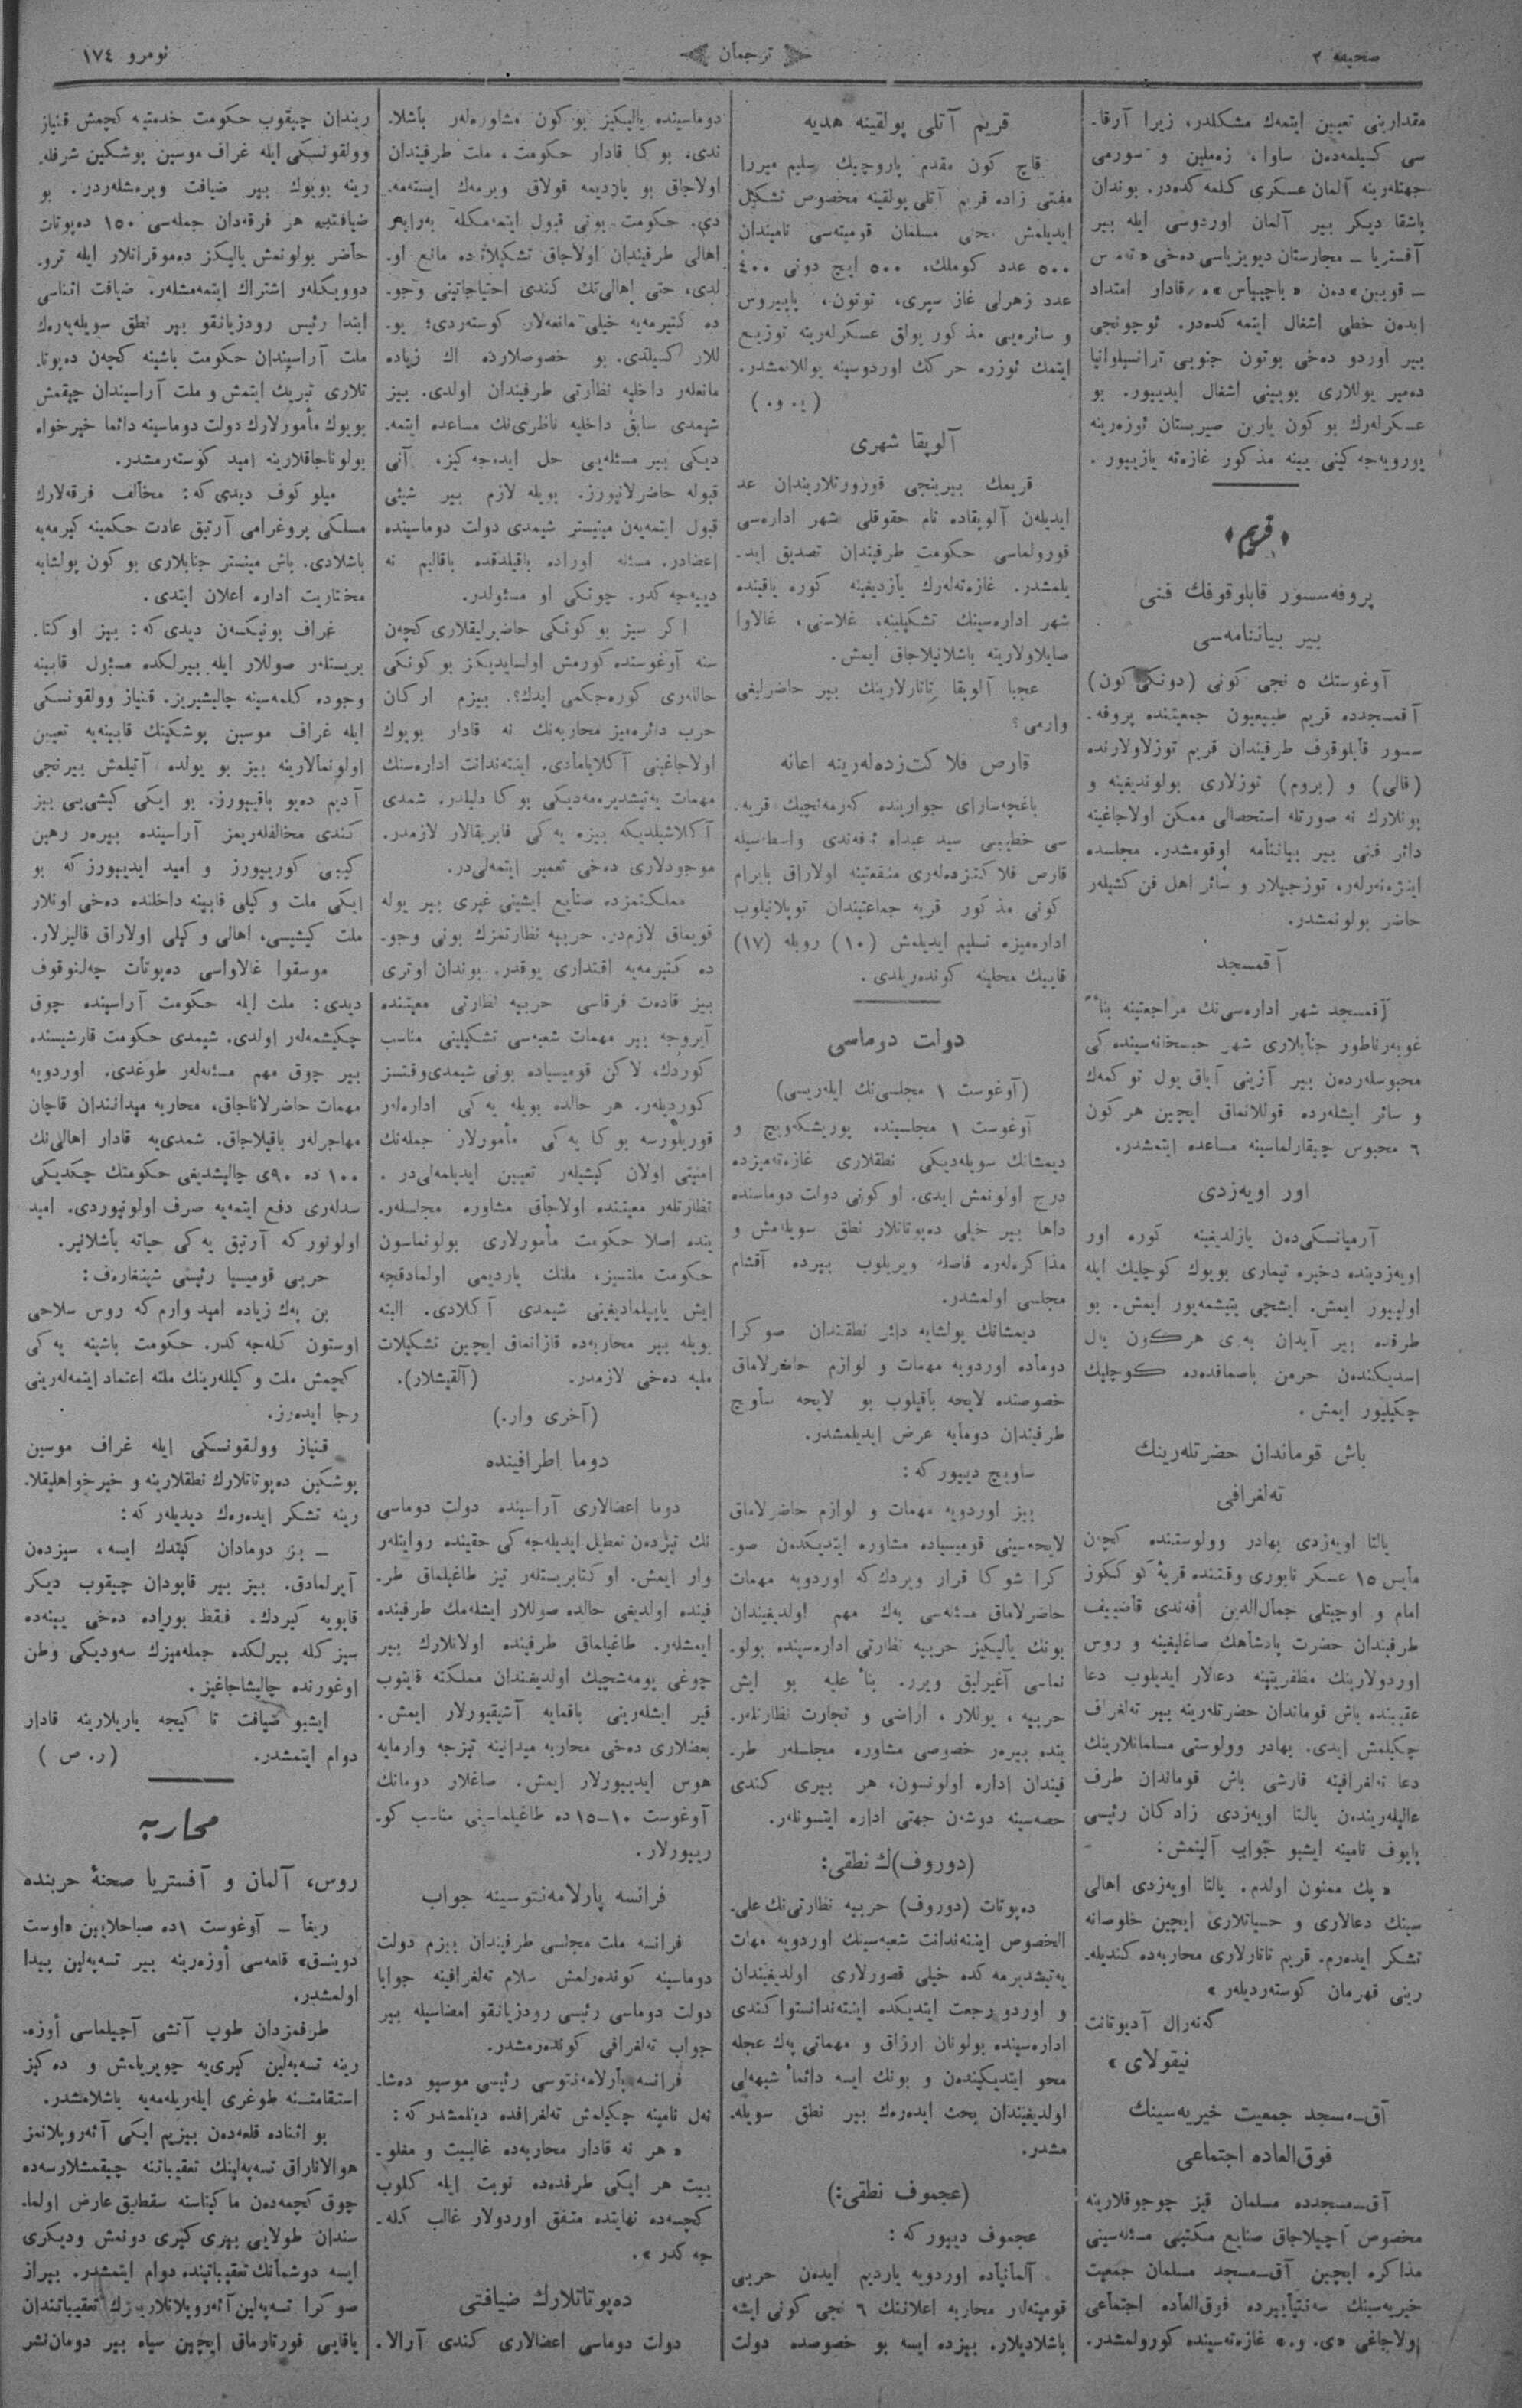 صحیفه ٢
ترجمان
نومرو ١٧٤
مقدارینی تعیین ایتمەك مشكلدر، زیرا آرقا۔
سی كیلمەدەن ساوا، زەملین و سورمی
جهتلەرینه آلمان عسكری كلمه كدەدر. بوندان
باشقا دیكر بیر آلمان اوردوسی ایله بیر
آفستریا ــ مجارستان دیویزیاسی دەخی
ایدەن خطی اشغال ایتمه كدەدر. ئوچونجی
بیر اوردو دەخی بوتون جنوبی ترانسیلوانیا
دەمیر یوللاری بویینی اشغال ایدییور. بو
عسكرلەرك بو كون یارین صیربستان ئوزەرینه
یورویەجەكینی یینه مذكور غازەته یازییور.
«قریم»
پروفەسسور قابلوقوفك فنی
بیر بیاننامەسی
آوغوستك ٥ نجی كونی (دونكی كون)
آقمسجدده قریم طبیعیون جمعیتنده پروفه۔
سسور قابلوقوف طرفیندان قریم توزلاولارنده
(قالی) و (بروم) توزلاری بولوندیغینه و
بونلارك نه صورتله استحصالی ممكن اولاجاغینه
دائر فنی بیر بیاننامه اوقومشدر. مجلسده
اینژەنەرلەر، توزجیلار و سائر اهل فن كشیلەر
حاضر بولونمشدر.
آقمسجد
آقمسجد شهر ادارەسی‌نك مراجعتینه بناءً
غوبەرناطور جنابلاری شهر حبسخانەسیندەكی
محبوسلەردەن بیر آزینی آیاق یول توكمەك
و سائر ایشلەردە قوللانماق ایچین هر كون
٦ محبوس چیقارلماسینه مساعده ایتمشدر.
اور اویەزدی
آرمیانسكی‌دەن یازلدیغینه كوره اور
اویەزدینده ذخیره تیماری بویوك كوچلیك ایله
اولییور ایمش. ایشچی یتیشمەیور ایمش. بو
طرفده بیر آیدان بەری هركون یل
اسدیكندەن حرمن باصماقدەدە كوچلیك
چكیلیور ایمش.
باش قوماندان حضرتلەرینك
تەلغرافی
یالتا اویەزدی بهادر وولوستنده كچەن
مایس ١٥ عسكر تابوری وقتنده قریۀ كوككوز
امام و اوچیتلی جمال‌الدین أفەندی قاضییف
طرفیندان حضرت پادشاهك صاغلیغینه و روس
اوردولارینك مظفریتینه دعالار ایدیلوب دعا
عقیبنده باش قوماندان حضرتلەرینه بیر تەلغراف
چكیلمش ایدی. بهادر وولوستی مسلمانلارینك
دعا تەلغرافینه قارشی باش قوماندان طرف
عالیلەریندەن یالتا اویەزدی زادكان رئیسی
پاپوف نامینه ایشبو جواب آلینمش:
«پك ممنون اولدم. یالتا اویەزدی اهالی
سینك دعالاری و حسیاتلاری ایچین خلوصانه
تشكر ایدەرم. قریم تاتارلاری محاربەده كندیله۔
رینی قهرمان كوستەردیلەر»
گەنەرال آدیوتانت
نیقولای»
آق‌ـ‌مسجد جمعیت خیریەسینك
فوق‌العاده اجتماعی
آق‌ـ‌مسجدده مسلمان قیز چوجوقلارینه
مخصوص آچیلاجاق صنایع مكتبی مسئلەسینی
مذاكره ایچین آق‌ـ‌مسجد مسلمان جمعیت
خیریەسینك سەنتیابیرده فوق‌العاده اجتماعی
اولاجاغی «ی. و.» غازەتەسینده كورولمشدر.
قریم آتلی پولقینه هدیه
قاچ كون مقدم یاروچیك سلیم میرزا
مفتی زاده قریم آتلی پولقینه مخصوص تشكیل
ایدیلمش محلی مسلمان قومیتەسی نامیندان
٥٠٠ عدد كوملك، ٥٠٠ ایچ دونی ٤٠٠
عدد زهرلی غاز سپری، توتون، پاپیروس
و سائرەیی مذكور پولق عسكرلەرینه توزیع
ایتمك ئوزره حركك اوردوسینه یوللانمشدر.
(ی. و.)
آلوپقا شهری
قریمك بیرینجی قوزورتلاریندان عد
ایدیلەن آلوپقاده تام حقوقلی شهر ادارەسی
قورولماسی حكومت طرفیندان تصدیق اید۔
یلمشدر. غازەتەلەرك یازدیغینه كوره یاقینده
شهر ادارەسینك تشكیلینه، غلاسنی، غالاوا
صایلاولارینه باشلانیلاجاق ایمش.
عجبا آلوپقا تاتارلارینك بیر حاضرلیغی
وارمی؟
قارص فلاكت‌زدەلەرینه اعانه
باغچەسارای جوارینده كەرمەنچیك قریه۔
سی خطیبی سید عبداه ئەفەندی واسطەسیله
قارص فلاكتزدەلەری منفعتینه اولاراق بایرام
كونی مذكور قریه جماعتیندان توپلانیلوب
ادارەمیزه تسلیم ایدیلمش (١٠) روبله (١٧)
قاپیك محلینه كوندەریلدی.
دولت دوماسی
(آوغوست ١ مجلسی‌نك ایلەریسی)
آوغوست ١ مجلسینده پوریشكەویچ و
دیمشانك سویلەدیكی نطقلاری غازەتەمیزده
درج اولونمش ایدی. او كونی دولت دوماسنده
داها بیر خیلی دەپوتاتلار نطق سویلەمش و
مذاكرەلەره فاصله ویریلوب بیرده آقشام
مجلسی اولمشدر.
دیمشانك پولشایه دائر نطقندان صوكرا
دوماده اوردویه مهمات و لوازم حاضرلاماق
خصوصنده لایحه باقیلوب بو لایحه ساویچ
طرفیندان دومایه عرض ایدیلمشدر.
ساویچ دییور كه:
بیز اوردویه مهمات و لوازم حاضرلاماق
لایحەسینی قومیسیاده مشاوره ایتدیكدەن صو۔
كرا شوكا قرار ویردك كه اوردویه مهمات
حاضرلاماق مسئلەسی پەك مهم اولدیغیندان
بونك یالیكیز حربیه نظارتی ادارەسینده بولو۔
نماسی آغیرلیق ویرر. بناءً علیه بو ایش
حربیه، یوللار، اراضی و تجارت نظارتلەر۔
ینده بیرەر خصوصی مشاوره مجلسلەر طر۔
فیندان اداره اولونسون، هر بیری كندی
حصەسینه دوشەن جهتی اداره ایتسونلەر.
(دوروف)ك نطقی:
دەپوتات (دوروف) حربیه نظارتی‌نك علی۔
الخصوص اینتەندانت شعبەسینك اوردویه مهمات
یەتیشدیرمەكده خیلی قصورلاری اولدیغیندان
و اوردو رجعت ایتدیكده اینتەندانستوا كندی
ادارەسینده بولونان ارزاق و مهماتی پەك عجله
محو ایتدیكیندەن و بونك ایسه دائماً شبهەلی
اولدیغیندان بحث ایدەرەك بیر نطق سویله۔
مشدر.
(عجموف نطقی:)
عجموف دییور كه:
آلمانیاده اوردویه یاردیم ایدەن حربی
قومیتەلر محاربه اعلاننك ٦ نجی كونی ایشه
باشلادیلار. بیزده ایسه بو خصوصده دولت
دوماسینده یالیكیز بو كون مشاورەلەر باشلا۔
ندی، بو كا قادار حكومت، ملت طرفیندان
اولاجاق بو یاردیمه قولاق ویرمەك ایستەمه۔
دی. حكومت بونی قبول ایتمەمكله بەرابەر
اهالی طرفیندان اولاجاق تشكیلاتده مانع او۔
لدی، حتی اهالی‌نك كندی احتیاجاتینی وجو۔
ده كتیرمەیه خیلی مانعەلار كوستەردی؛ یو۔
للار كسیلدی. بو خصوصلارده اك زیاده
مانعلەر داخلیه نظارتی طرفیندان اولدی. بیز
شیمدی سابق داخلیه ناظری‌نك مساعده ایتمه۔
دیكی بیر مسئلەیی حل ایدەجەكیز، آنی
قبوله حاضرلانیورز. بویله لازم بیر شیئی
قبول ایتمەیەن مینیستر شیمدی دولت دوماسینده
اعضادر. مسئله اوراده باقیلدقده باقالیم نه
دییەجەكدر. چونكی او مسئولدر.
اكر سیز بوكونكی حاضیرلیقلاری كچەن
سنه آوغوستده كورمش اولسایدیكز بوكونكی
حاللەری كورەجكمی ایدك؟. بیزم اركان
حرب دائرەمیز محاربەنك نه قادار بویوك
اولاجاغینی آكلایامادی. اینتەندانت ادارەسنك
مهمات یەتیشدیرەمەدیكی بوكا دلیلدر. شمدی
آكلاشیلدیكه بیزه یەكی فابریقالار لازمدر.
موجودلاری دەخی تعمیر ایتمەلی‌در.
مملكتمزده صنایع ایشینی غیری بیر یوله
قویماق لازم‌در. حربیه نظارتمزك بونی وجو۔
ده كتیرمەیه اقتداری یوقدر. بوندان اوتری
بیز قادەت فرقاسی حربیه نظارتی معیتنده
آیروجه بیر مهمات شعبەسی تشكیلینی مناسب
كوردك، لاكن قومیسیاده بونی شیمدی وقتسز
كوردیلەر. هر حالده بویله یەكی ادارەلەر
قوریلورسه بوكا یەكی مأمورلار جملەنك
امنیتی اولان كیشیلەر تعیین ایدیلمەلی‌در.
نظارتلەر معیتنده اولاجاق مشاوره مجلسلەر۔
ینده اصلا حكومت مأمورلاری بولونماسون
حكومت ملتسیز، ملتك یاردیمی اولمادقچه
ایش یاپیلمادیغینی شیمدی آكلادی. البته
بویله بیر محاربەده قازانماق ایچین تشكیلات
ملیه دەخی لازمدر. (آلقیشلار).
(آخری وار.)
دوما اطرافینده
دوما اعضالاری آراسینده دولت دوماسی
نك تیزدەن تعطیل ایدیلەجەكی حقینده روایتلەر
وار ایمش. اوكتابریستلەر تیز طاغیلماق طر۔
فینده اولدیغی حالده صوللار ایشلەمك طرفینده
ایمشلەر. طاغیلماق طرفینده اولانلارك بیر
چوغی پومەشچیك اولدیغندان مملكته قایتوب
قیر ایشلەرینی باقمایه آشیقیورلار ایمش.
بعضلاری دەخی محاربه میدانینه تیزجه وارمایه
هوس ایدییورلار ایمش. صاغلار دومانك
آوغوست ١٠ــ١٥ ده طاغیلماسینی مناسب كو۔
رییورلار.
فرانسه پارلامەنتوسینه جواب
فرانسه ملت مجلسی طرفیندان بیزم دولت
دوماسینه كوندەرلمش سلام تەلغرافینه جوابا
دولت دوماسی رئیسی رودزیانقو امضاسیله بیر
جواب تەلغرافی كوندەرمشدر.
فرانسه پارلامەنتوسی رئیسی موسیو دەشا۔
نەل نامینه چكیلمش تەلغرافده دینلمشدر كه:
«هر نه قادار محاربەده غالبیت و مغلو۔
بیت هر ایكی طرفدەده نوبت ایله كلوب
كچسەده نهایتده متفق اوردولار غالب كله۔
جەكدر».
دەپوتاتلارك ضیافتی
دولت دوماسی اعضالاری كندی آرالا۔
ریندان چیقوب حكومت خدمتینه كچمش قنیاز
وولقونسكی ایله غراف موسین پوشكین شرفله۔
رینه بویوك بیر ضیافت ویرمشلەردر. بو
ضیافتده هر فرقەدان جملەسی ١٥٠ دەپوتات
حاضر بولونمش یالیكز دەموقراتلار ایله ترو۔
دوویكلەر اشتراك ایتمەمشلەر. ضیافت اثناسی
ابتدا رئیس رودزیانقو بیر نطق سویلەیەرەك
ملت آراسیندان حكومت باشینه كچەن دەپوتا۔
تلاری تبریك ایتمش و ملت آراسیندان چیقمش
بویوك مأمورلارك دولت دوماسینه دائما خیرخواه
بولوناجاقلارینه امید كوستەرمشدر.
میلوكوف دیدی كه: مخالف فرقەلارك
مسلكی پروغرامی آرتیق عادت حكمینه كیرمەیه
باشلادی. باش مینستر جنابلاری بو كون پولشایه
مختاریت اداره اعلان ایتدی.
غراف بونیكسەن دیدی كه: بیز اوكتا۔
بریستلەر صوللار ایله بیرلكده مسئول قابینه
وجوده كلمەسینه چالیشیریز. قنیاز وولقونسكی
ایله غراف موسین پوشكینك قابینەیه تعیین
اولونمالارینه بیز بو یولده آتیلمش بیرنجی
آدیم دەیو باقییورز. بو ایكی كیشی‌یی بیز
كندی مخالفلەریمز آراسینده بیرەر رهین
كیبی كورییورز و امید ایدییورز كه بو
ایكی ملت وكیلی قابینه داخلنده دەخی اونلار
ملت كیشیسی، اهالی وكیلی اولاراق قالیرلار.
موسقوا غالاواسی دەپوتات چەلنوقوف
دیدی: ملت ایله حكومت آراسینده چوق
چكیشمەلەر اولدی. شیمدی حكومت قارشیسنده
بیر چوق مهم مسئلەلەر طوغدی. اوردویه
مهمات حاضرلاناجاق، محاربه میدانندان قاچان
مهاجرلەر باقیلاجاق. شمدی‌یه قادار اهالی‌نك
١٠٠ ده ٩٠ی چالیشدیغی حكومتك چكدیكی
سدلەری دفع ایتمەیه صرف اولونیوردی. امید
اولونور كه آرتیق یەكی حیاته باشلانیر.
حربی قومیسیا رئیسی شینغارەف:
بن پەك زیاده امید وارم كه روس سلاحی
اوستون كلەجەكدر. حكومت باشینه یەكی
كچمش ملت وكیللەرینك ملته اعتماد ایتمەلەرینی
رجا ایدەرز.
قنیاز وولقونسكی ایله غراف موسین
پوشكین دەپوتاتلارك نطقلارینه و خیرخواهلیقلا۔
رینه تشكر ایدەرەك دیدیلەر كه:
ــ بز دومادان كیتدك ایسه، سیزدەن
آیرلمادق. بیز بیر قاپودان چیقوب دیكر
قاپویه كیردك. فقط بوراده دەخی یینەده
سیزكله بیرلكده جملەمیزك سەودیكی وطن
اوغورنده چالیشاجاغیز.
ایشبو ضیافت تا كیجه یاریلارینه قادار
دوام ایتمشدر. (ر. ص)
محاربه
روس، آلمان و آفستریا صحنۀ حربنده
ریغا ــ آوغوست ١ده صباحلایین «اوست
دوینسق» قلعەسی أوزەرینه بیر تسەپەلین پیدا
اولمشدر.
طرفمزدان طوپ آتشی آچیلماسی أوزه۔
رینه تسەپەلین كیری‌یه چویریلمش و دەكیز
استقامتنه طوغری ایلەریلەمەیه باشلامشدر.
بو اثناده قلعەدەن بیزیم ایكی آئەروپلانمز
هوالاناراق تسەپەلینك تعقیباتنه چیقمشلارسەده
چوق كچمەدەن ماكیناسنه سقطلق عارض اولما۔
سندان طولایی بیری كیری دونمش ودیكری
ایسه دوشمانك تعقیباتینده دوام ایتمشدر. بیراز
صوكرا تسەپەلین آئەروپلانلاریمزك تعقیباتندان
یاقایی قورتارماق ایچین سیاه بیر دومان نشر